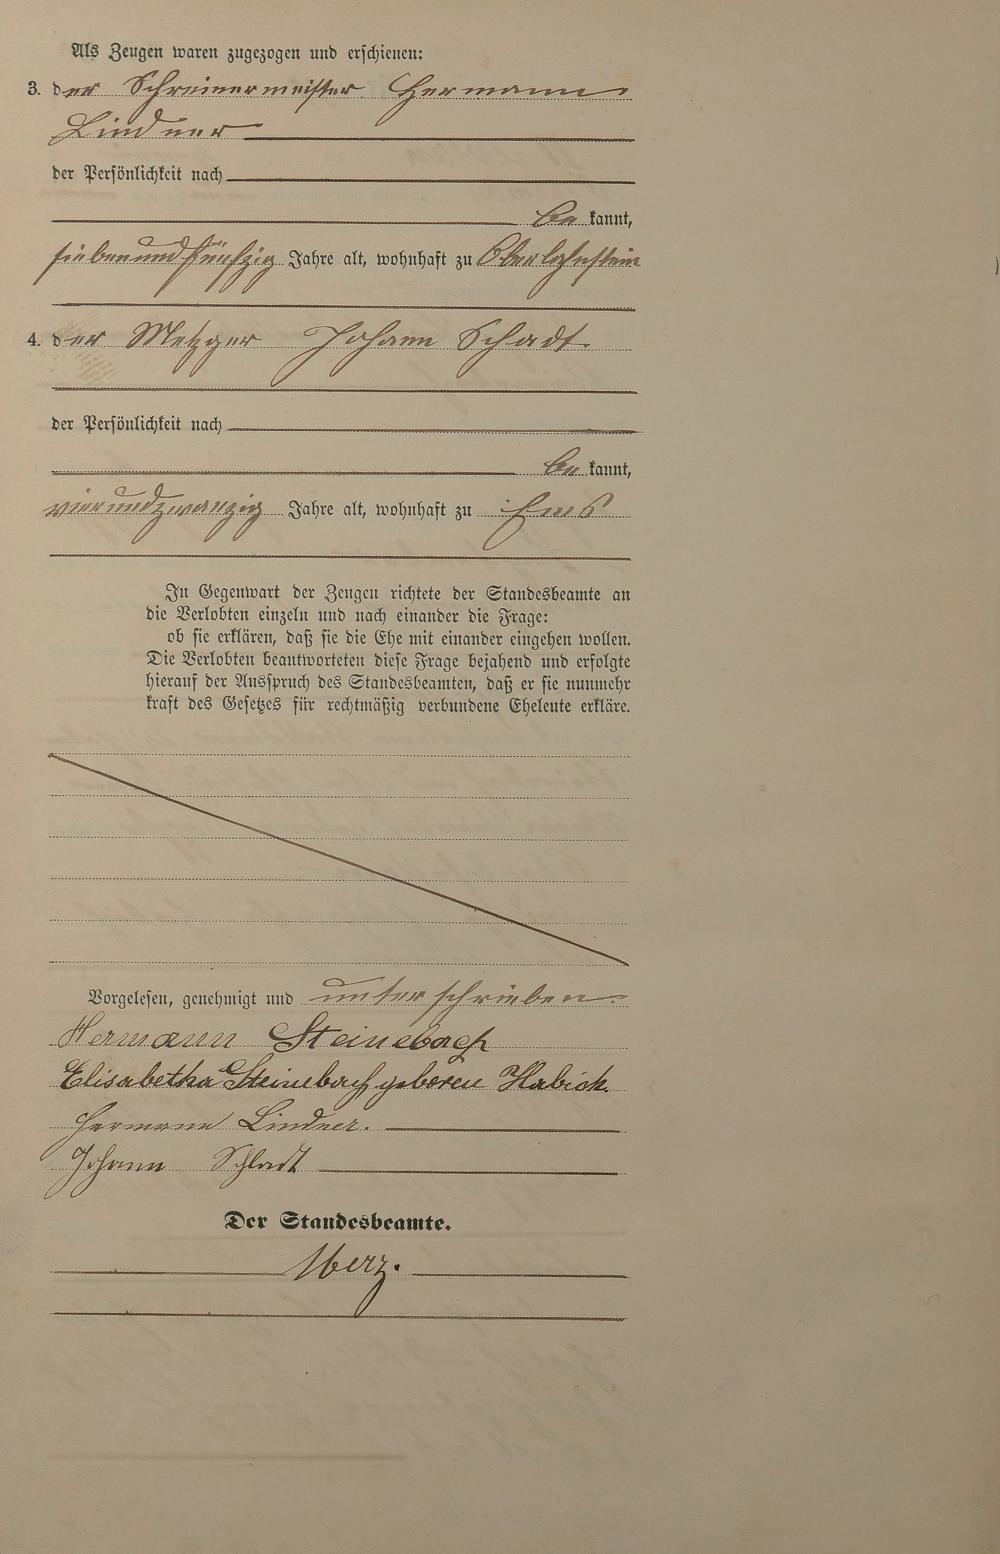 Als Zeugen waren zugezogen und erschienen:
3. der Schreinermeister Hermann
Lindner
der Persönlichkeit nach
be kannt,
siebenundfünfzig Jahre alt, wohnhaft zu Oberlahnstein
4. der Metzger Johann Schadt
der Persönlichkeit nach
be kannt,
vierundzwanzig Jahre alt, wohnhaft zu Ems
In Gegenwart der Zeugen richtete der Standesbeamte an
die Verlobten einzeln und nach einander die Frage:
ob sie erklären, daß sie die Ehe mit einander eingehen wollen.
Die Verlobten beantworteten diese Frage bejahend und erfolgte
hierauf der Ausspruch des Standesbeamten, daß er sie nunmehr
kraft des Gesetzes für rechtmäßig verbundene Eheleute erkläre.
Vorgelesen, genehmigt und unterschrieben.
Hermann Steinebach
Elisabetha Steinebach geboren Habick
Hermann Lindner.
Johann Schadt
Der Standesbeamte.
Merz.